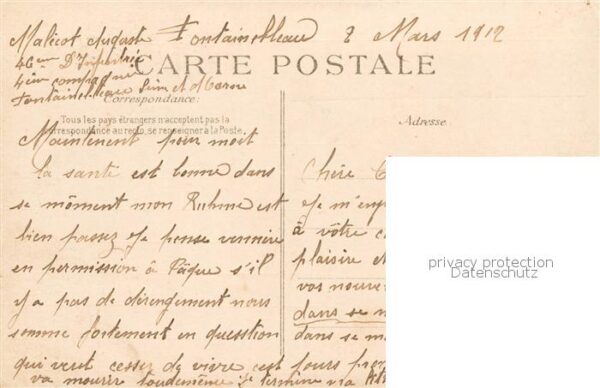 Malicot Auguste Fontainebleau 8 Mars 1912
46ème D'Infantrie
4ème compagnie
Fontainebleau Seine et Marne
CARTE POSTALE
Correspondance:
Tous les pays étrangers n'acceptent pas la
correspondance au recto, se renseigner à la Poste.
Adresse
Maintenent pour moit
la santé est bonne dans
se môment mon Ruhme est
bien passez Je pense vennire
en permission à Pâque s'il
y a pas de dérengement nous
somme fortement en question
qui veut cessez de vivre c'est
va mourire toudemême Je termine
Chère
Je m'en
à vôtre
plaisire et
vos nouve
dans se
dans se mo
jours
privacy protection
Datenschutz